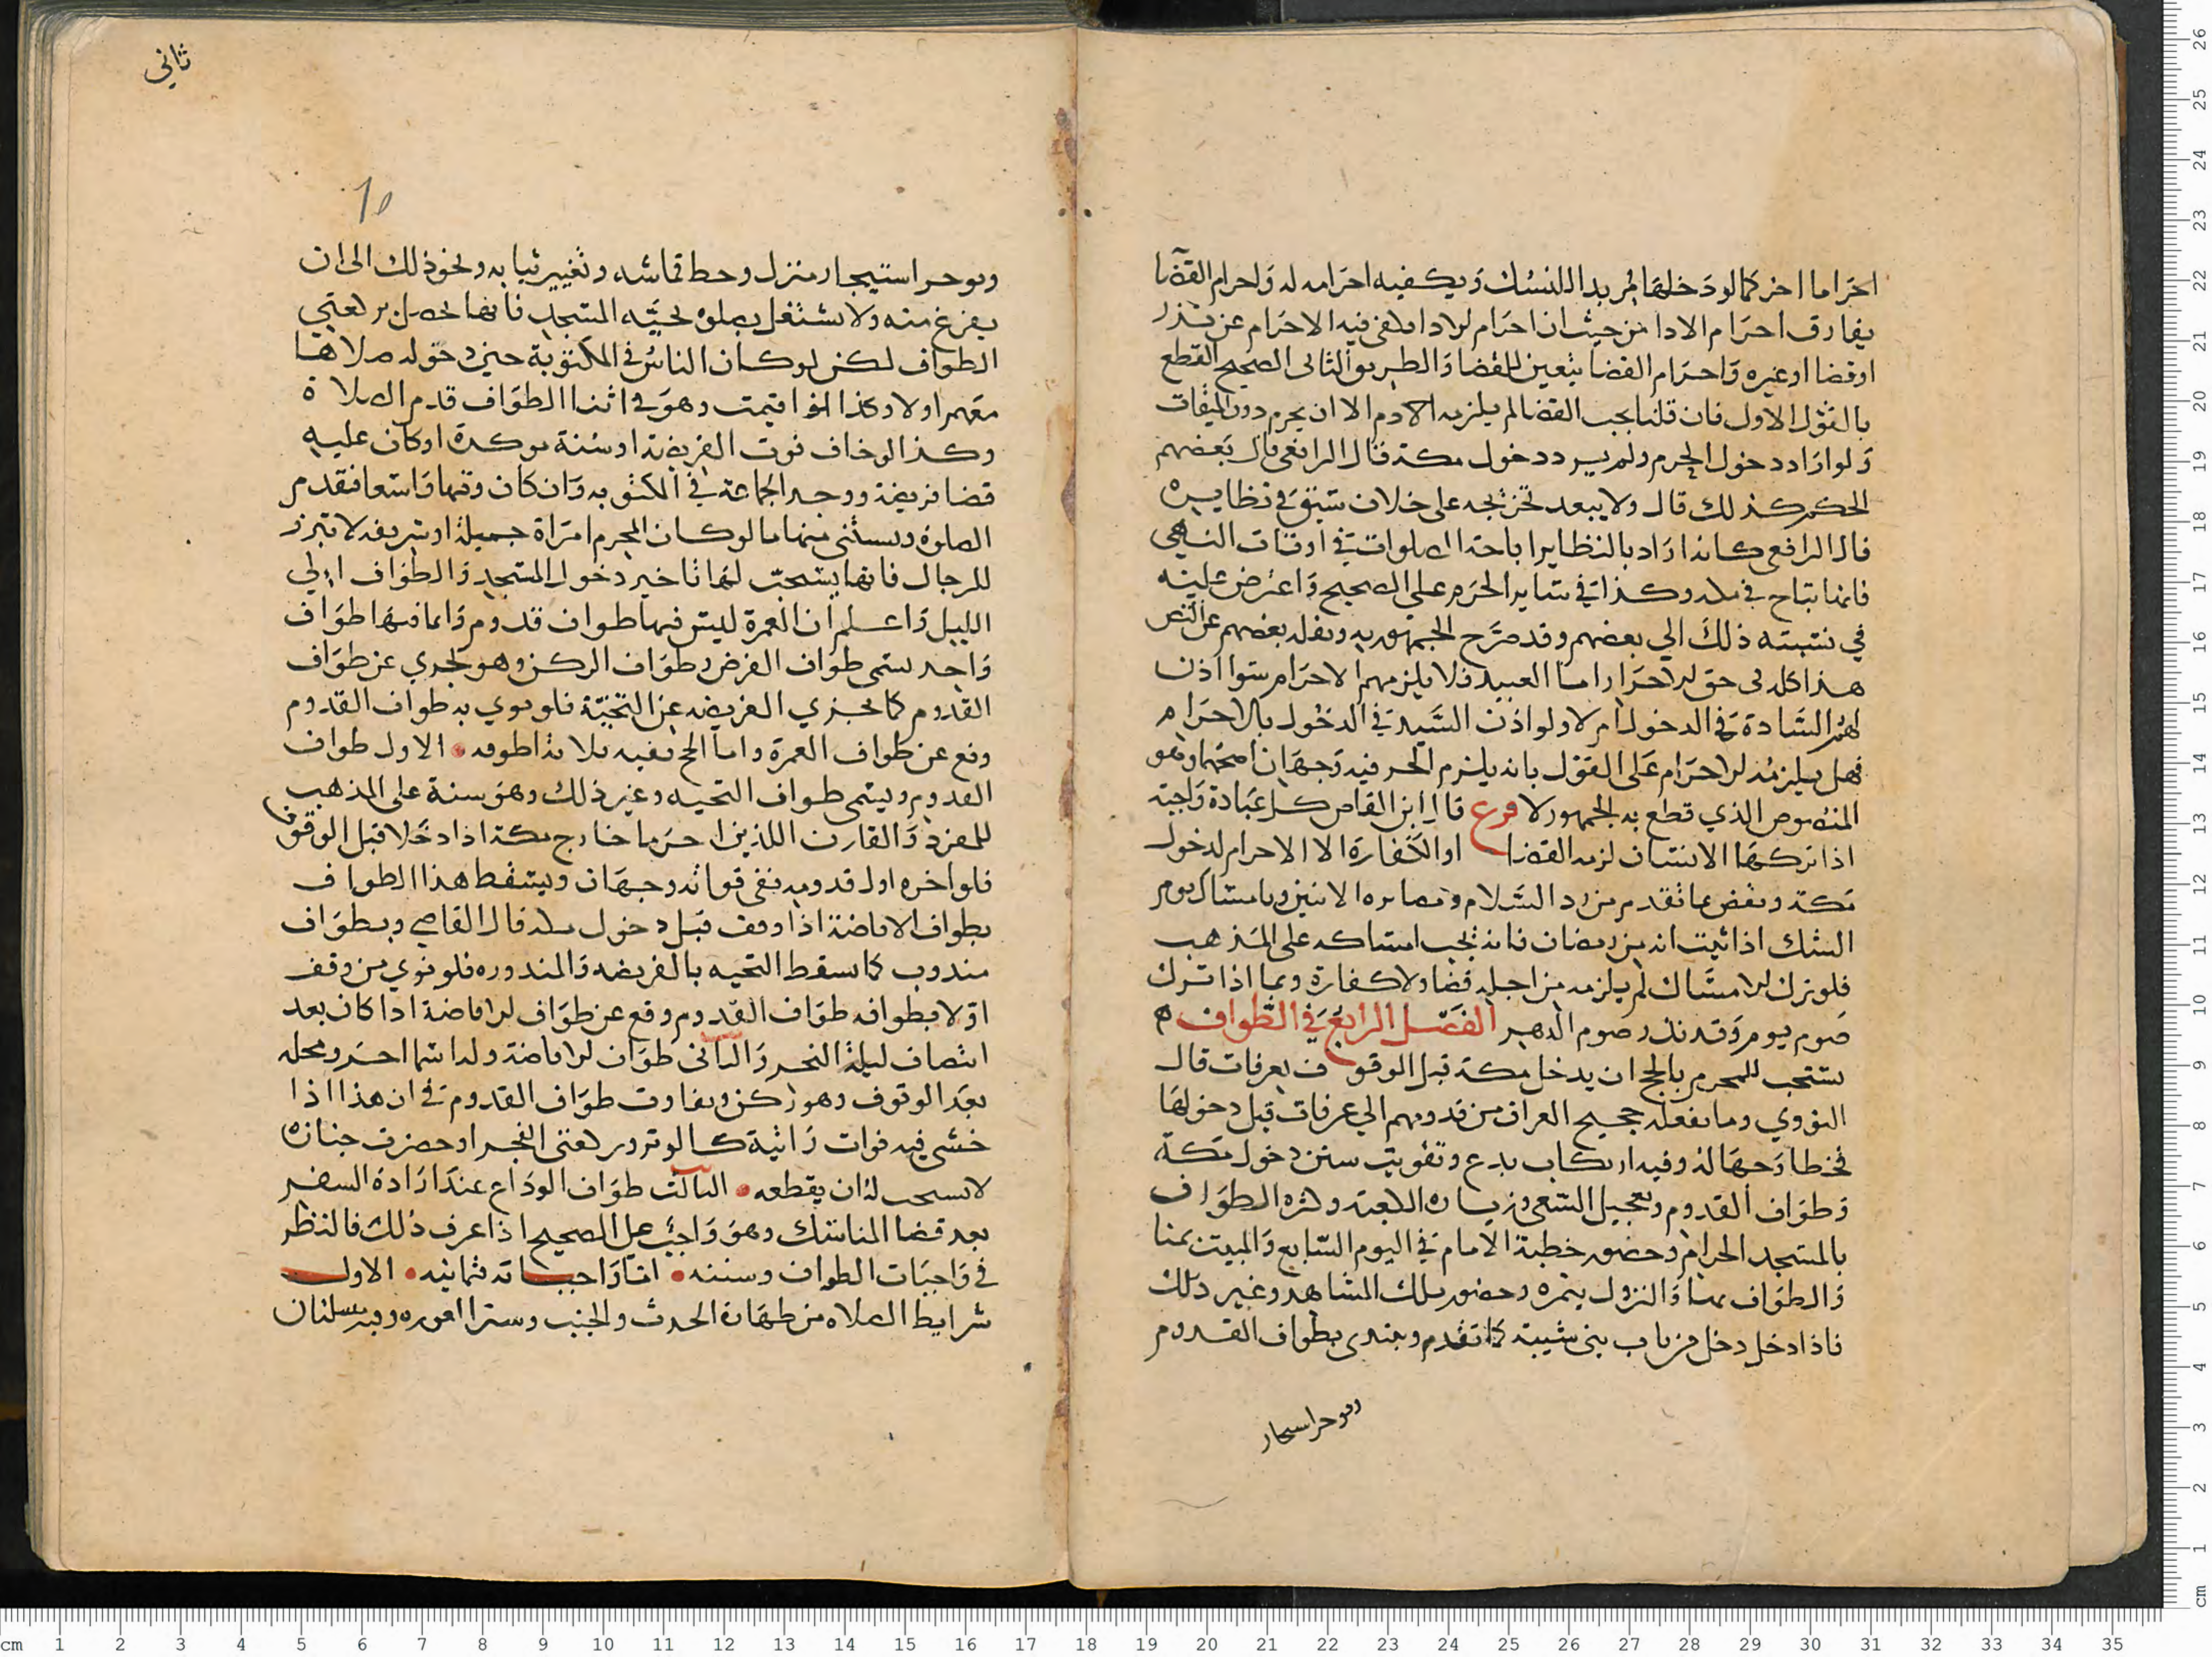 احراما اخر كما لو دخلها لمريدا للنسك ويكفيه احرامه له واحرام القضا
يفارق احرام الادا من حيث ان احرام الادا يكفي فيه الاحرام عن نذر
او قضا او غيره واحرام القضا يتعين للقضا والطريق الثاني الصحيح القطع
بالقول الاول فان قلنا يجب القضا لم يلزمه الا دم الا ان يحرم دون الميقات
ولو اراد دخول الحرم ولم يرد دخول مكة قال الرافعي قال بعضهم
الحكم كذلك قال ولا يبعد تخريجه على خلاف سبق في نظايره
قال الرافعي كانه اراد بالنظاير اباحة الصلوات في اوقات النهي
فانها تباح في مكه وكذا في ساير الحرم على الصحيح واعترض عليه
في نسبته ذلك الي بعضهم وقد صرح الجمهور به ونقله بعضهم عن النص
هذا كله في حق الاحرار اما العبيد فلا يلزمهم الاحرام سوا اذن
لهم السادة في الدخول ام لا ولو اذن السيد في الدخول بالاحرام
فهل يلزمه الاحرام على القول بانه يلزم الحر فيه وجهان اصحهما وهو
المنصوص الذي قطع به الجمهور لا فرع قال ابن القاص كل عبادة واجبة
اذا تركها الانسان لزمه القضا او الكفارة الا الاحرام لدخول
مكة ونقض بما تقدم من رد السلام و الاثنين وبامساك يوم
الشك اذا ثبت انه من رمضان فانه يجب امساكه على المذهب
فلو ترك الامساك لم يلزمه من اجله قضا ولا كفارة وبما اذا ترك
صوم يوم وقد نذر صوم الدهر الفصل الرابع في الطواف
يستحب للمحرم بالحج ان يدخل مكة قبل الوقوف بعرفات قال
النووي وما يفعله حجيج العراق من قدومهم الي عرفات قبل دخولها
فخطا وجهالة وفيه ارتكاب بدع وتفويت سنن دخول مكة
وطواف القدوم وتعجيل السعي وزيارة الكعبة وكثرة الطواف
بالمسجد الحرام وحضور خطبة الامام في اليوم السابع والمبيت بمنا
والطواف بمنا والنزول بنمره وحضور تلك المشاهد وغير ذلك
فاذا دخل دخل من باب بني شيبة كما تقدم ويبتدي بطواف القدوم
ويوخر استيجار
ثاني
10
ويوخر استيجار منزل وحط قماشه وتغيير ثيابه ونحو ذلك الى ان
يفرغ منه ولا يشتغل بصلوة تحية المسجد فانها تحصل بركعتي
الطواف لكن لو كان الناس في المكتوبة حين دخوله صلاها
معهم اولا وكذا لو اقيمت وهو في اثنا الطواف قدم الصلاة
وكذا لو خاف فوت الفريضة او سنة موكدة او كان عليه
قضا فريضة ووجد الجماعة في المكتوبه وان كان وقتها واسعا فتقدم
الصلوة ويستثنى منها ما لو كان المحرم امراة جميلة او شريفه لا تبرز
للرجال فانها يستحب لها تاخير دخول المسجد والطواف الي
الليل واعلم ان العمرة ليس فيها طواف قدوم وانما فيها طواف
واحد يسمى طواف الفرض وطواف الركن وهو يجزي عن طواف
القدوم كما تجزي الفريضه عن التحية فلو نوي به طواف القدوم
وقع عن طواف العمرة واما الحج ففيه ثلاثة اطوفه الاول طواف
القدوم ويسمى طواف التحيه وغير ذلك وهو سنة على المذهب
للمفرد والقارن اللذين احرما خارج مكة اذا دخلا قبل الوقوف
فلو اخره اول قدومه ففي فواته وجهان ويسقط هذا الطواف
بطواف الافاضة اذا وقف قبل دخول مكه قال القاضي وبطواف
مندوب كما يسقط التحيه بالفريضه والمندوره فلو نوي من وقف
اولا بطوافه طواف القدوم وقع عن طواف الافاضة اذا كان بعد
انتصاف ليلة النحر والثاني طواف الافاضة وله اسما اخر ومحله
بعد الوقوف وهو ركن ويفارق طواف القدوم في ان هذا اذا
خشي فيه فوات راتبة كالوتر وركعتي الفجر او حضرت جنازة
لا يستحب له ان يقطعه الثالث طواف الوداع عند ارادة السفر
بعد قضا المناسك وهو واجب على الصحيح اذا عرف ذلك فالنظر
في واجبات الطواف وسننه اما واجباته فثمانيه الاول
شرايط الصلاه من طهارة الحدث والخبث وستر العوره